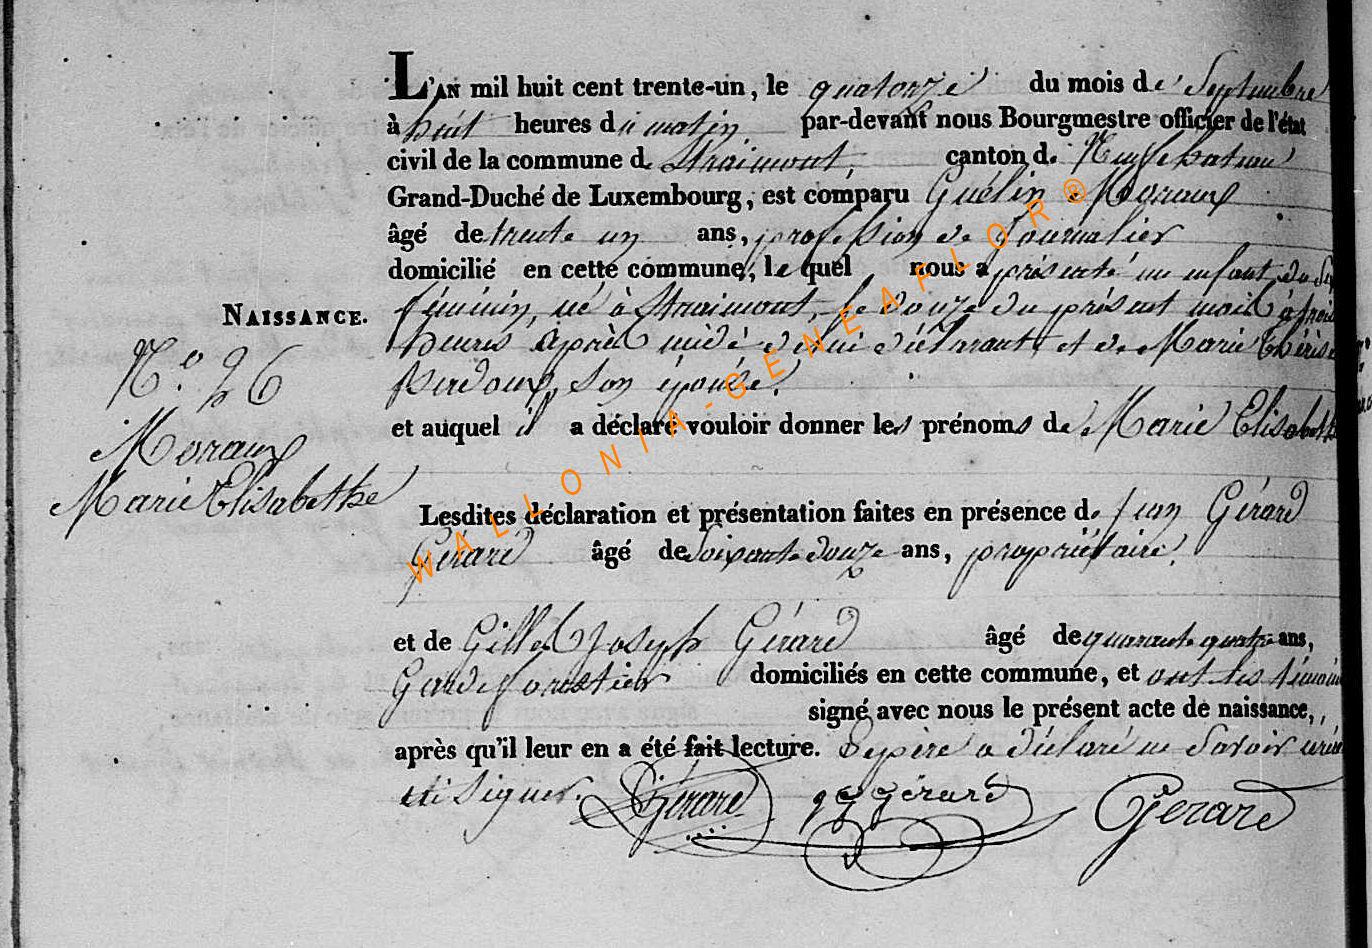 L'AN mil huit cent trente-un, le quatorze du mois de Septembre
à huit heures du matin par-devant nous Bourgmestre officier de l'état
civil de la commune de Straimont, canton de Neufchateau
Grand-Duché de Luxembourg, est comparu Guélin Moraux
âgé de trente un ans, profession de Journalier
domicilié en cette commune, le quel nous a présenté un enfant du Sex
NAISSANCE.
féminin, né à Straimont, le douze du présent mois à trois
heures après midi de lui déclarant, et de Marie Thérèse
N.º 26
Perdoux, son épouse,
Moraux
et auquel il a déclaré vouloir donner les prénoms de Marie Elisabethe
Marie Elisabethe
Lesdites déclaration et présentation faites en présence de Jean Gérard
Gérard âgé de Soixante douze ans, propriétaire,
et de Gilles Joseph Gérard âgé de quarante quatre ans,
Garde forestier domiciliés en cette commune, et ont les témoins
signé avec nous le présent acte de naissance,
après qu'il leur en a été fait lecture. Le père a déclaré ne Savoir écrire
ni Signer. Gérard gj gérard Gerard
WALLONIA-GENEAFLOR®